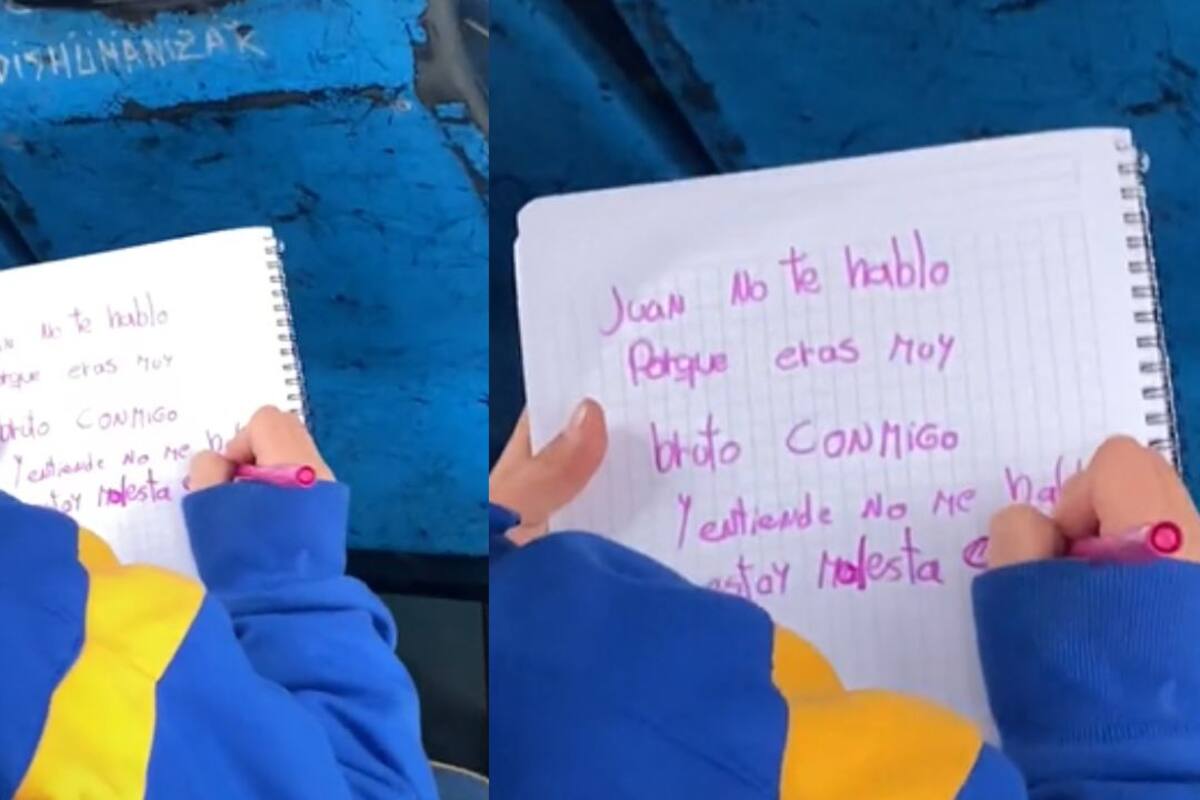 DISHUMANIZAR
no te hablo
eras muy
bruto CONMIGO
Y entiende No Me
molesta
Juan No te hablo
Porque eras muy
bruto CONMIGO
Y entiende No Me
estoy molesta